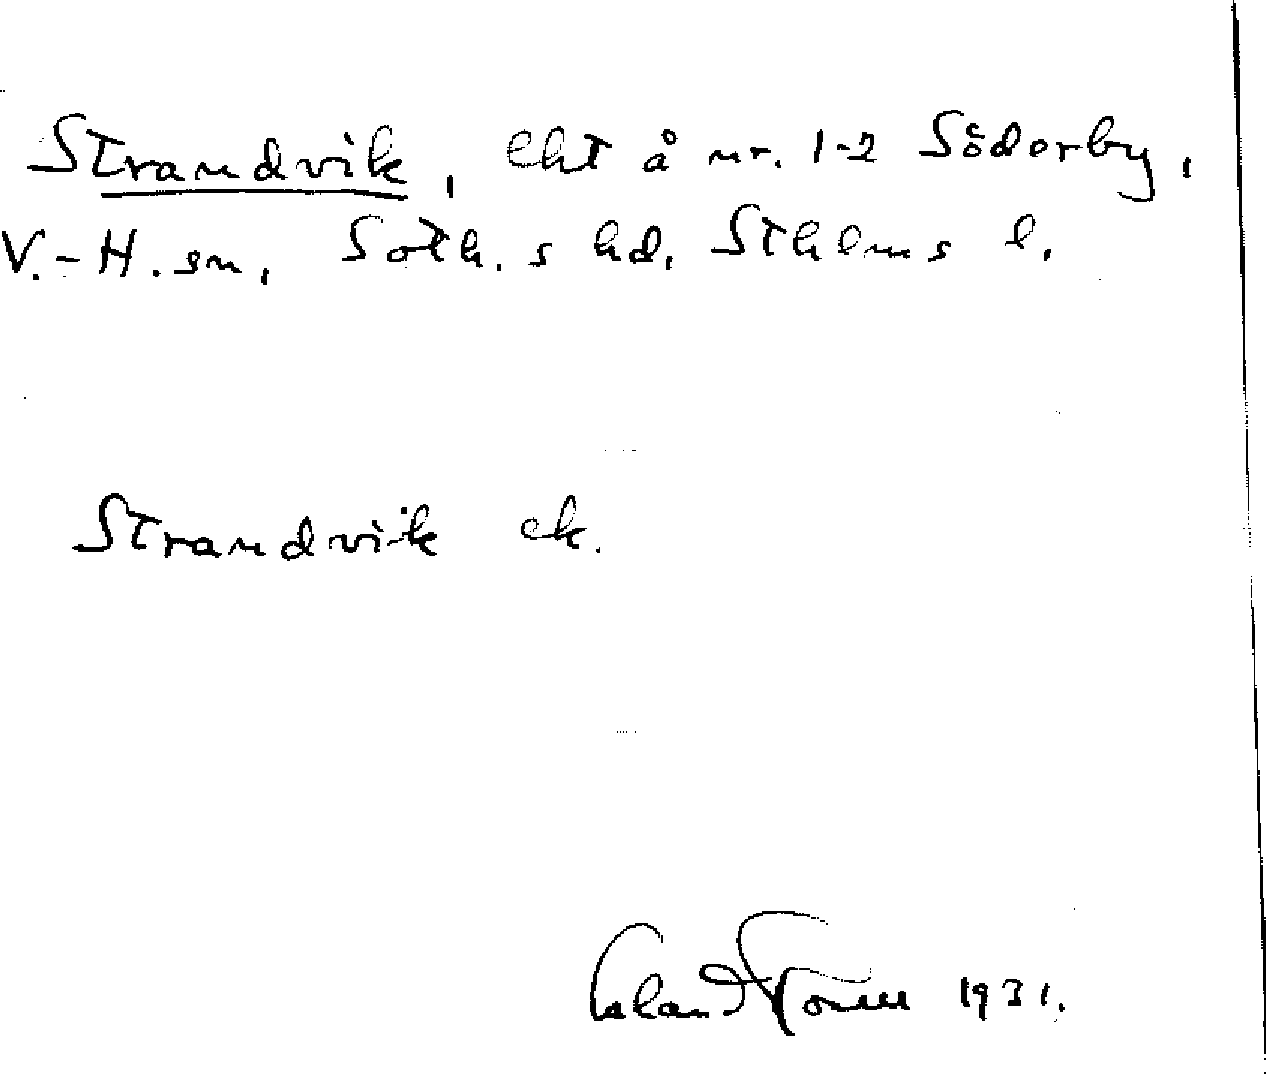 Strandvik, lht å nr. 1-2 Söderby,
V.-H. sn, Soth. s hd, Sthlms l.
Strandvik ek.
1931.